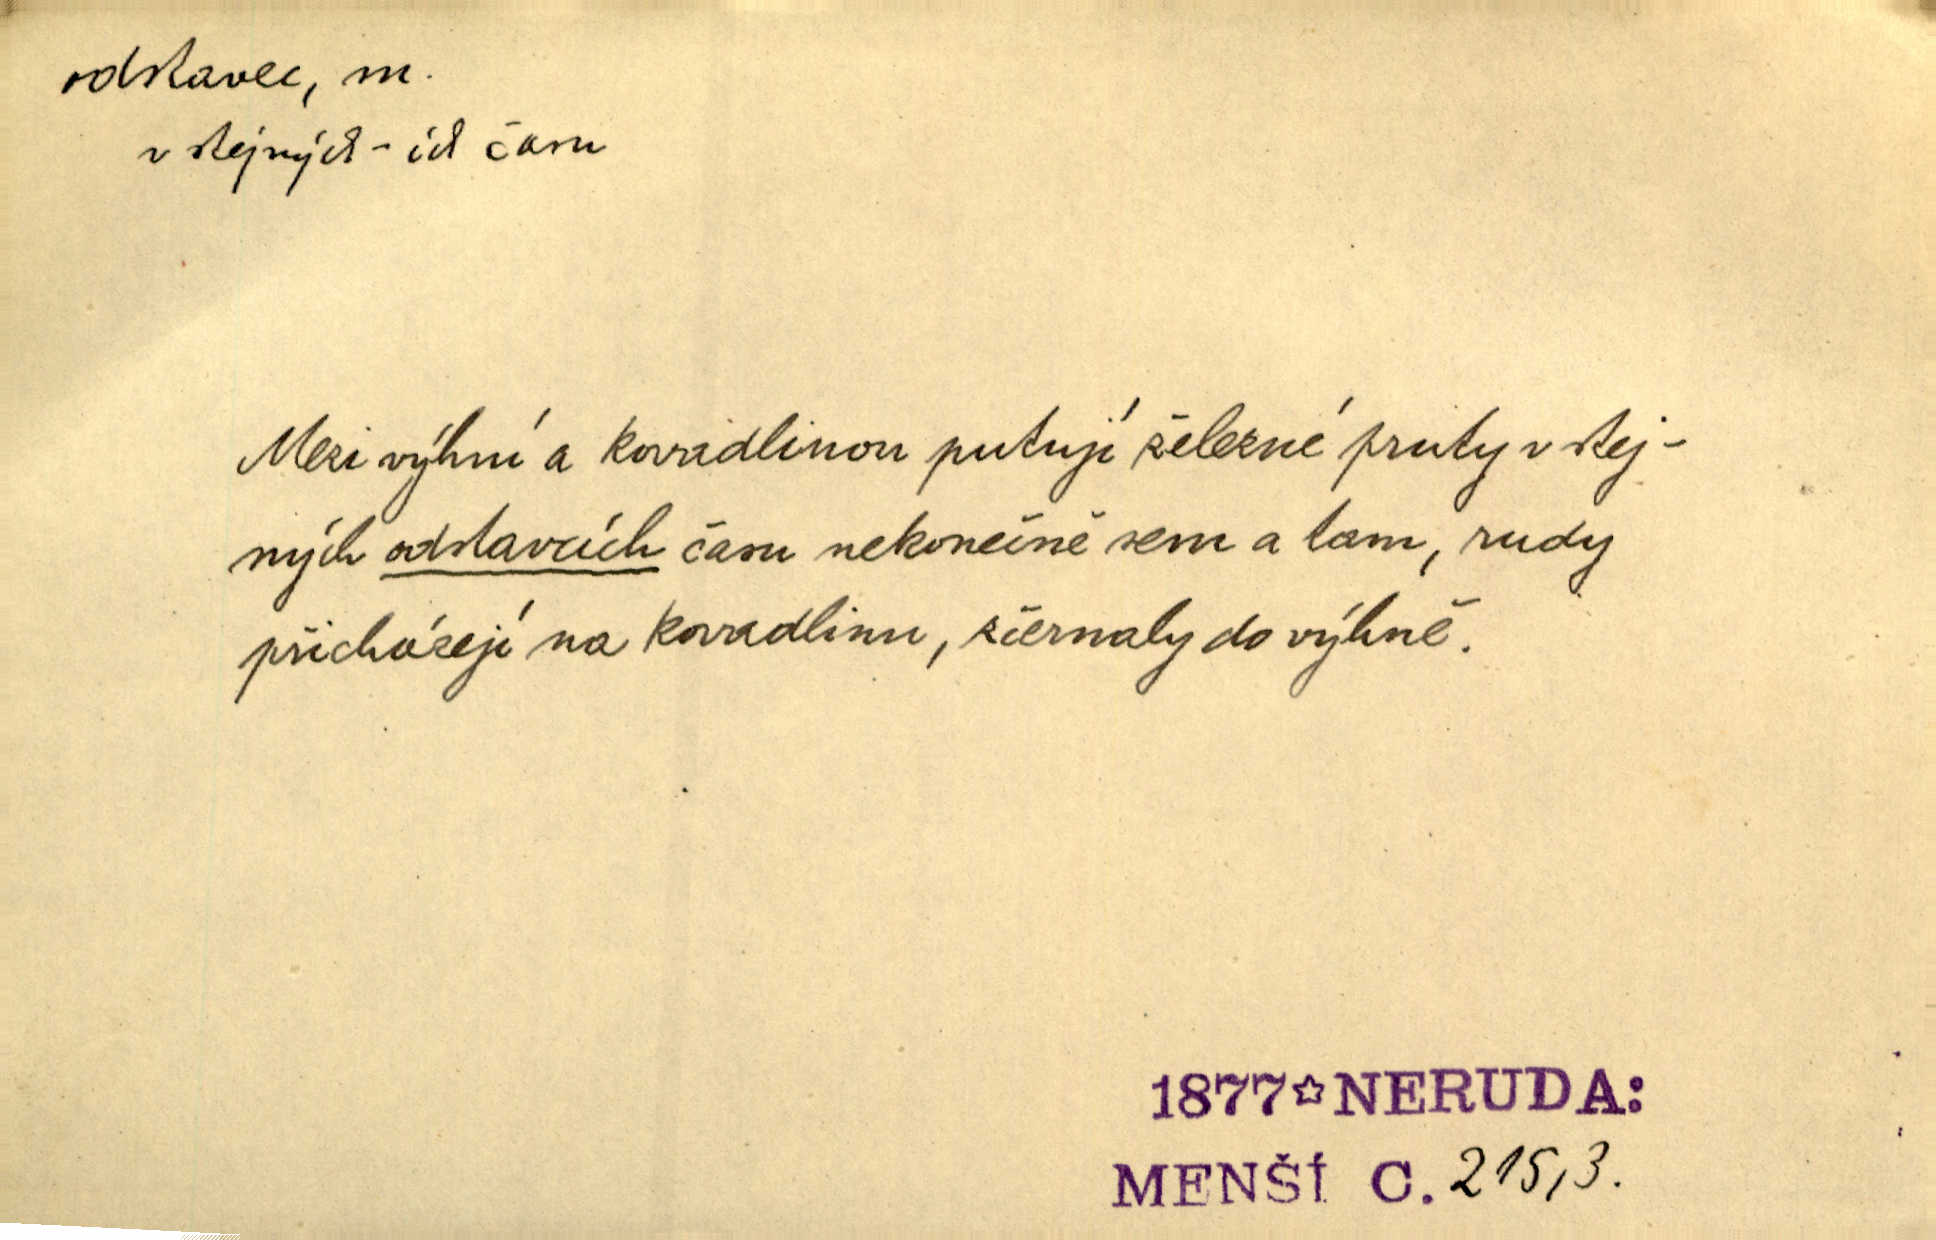 odstavec, m.
v stejných -ích času
Mezi výhní a kovadlinou putují železné pruty v stej-
ných odstavcích času nekonečně sem a tam, rudy
přicházejí na kovadlinu, zčernaly do výhně.
1877☆NERUDA:
MENŠÍ C. 215,3.